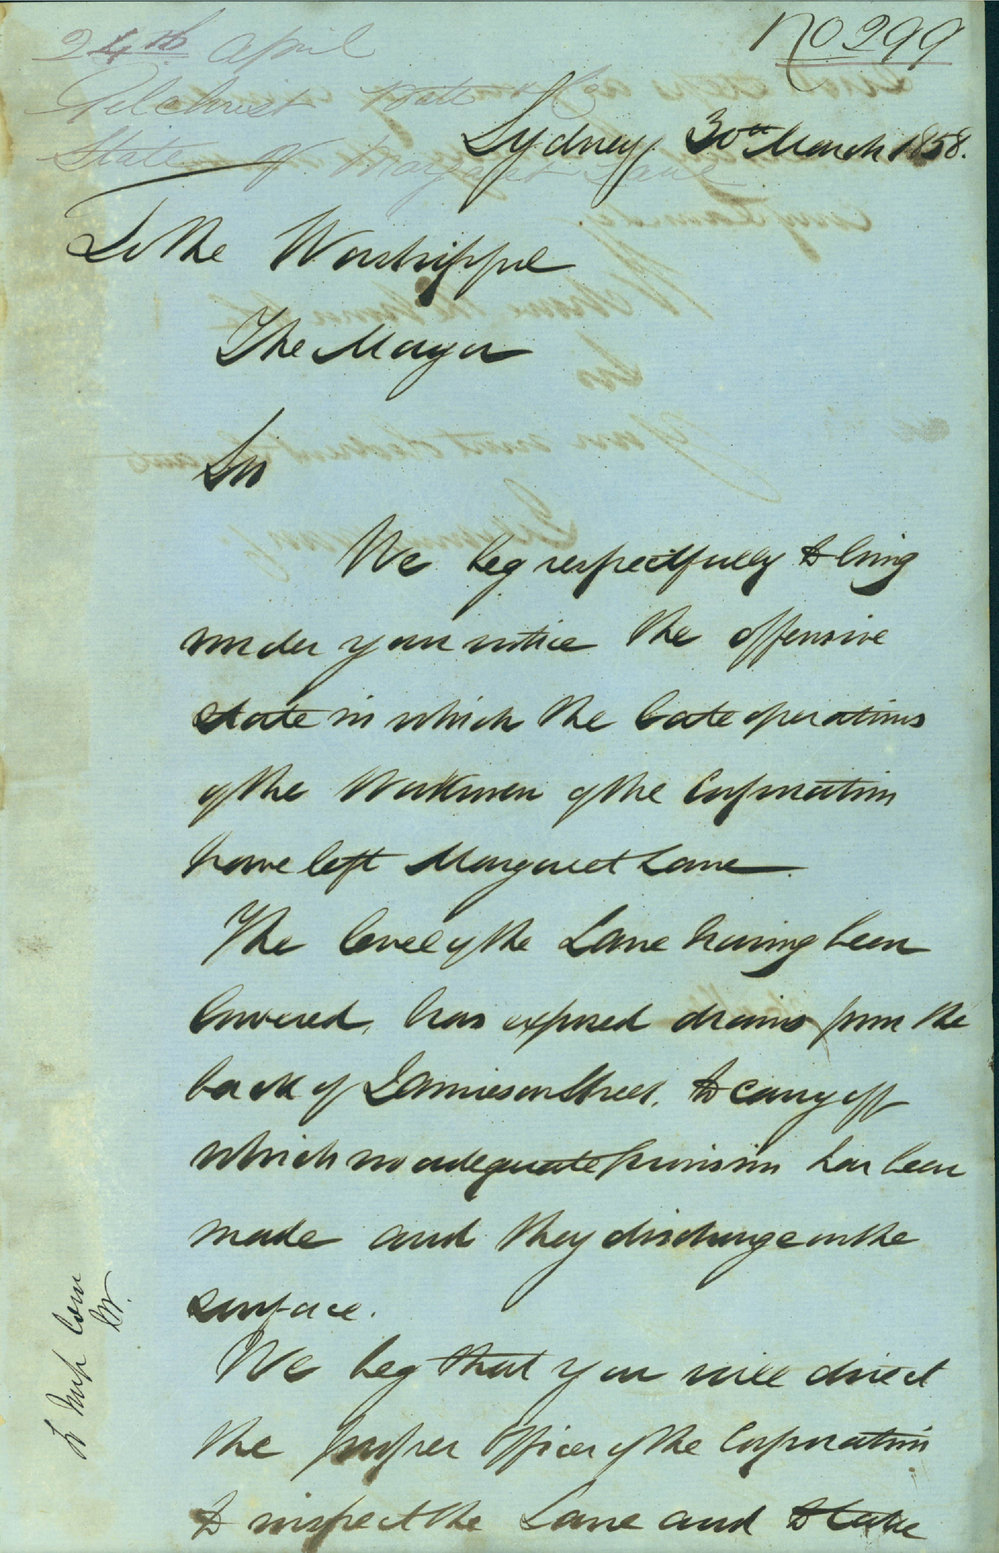 No 299
24th April
Gilchrist Watt & Co
State of Margaret Lane
Sydney 30th March 1858.
To the Worshipful
The Mayor
Sir
We beg respectfully to bring
under your notice the offensive
state in which the late operations
of the Workmen of the Corporation
have left Margaret Lane
The level of the Lane having been
lowered, has exposed drains from the
back of Jamieson Street, to carry off
which no adequate provision has been
made and they discharge on the
surface.
We beg that you will direct
the proper Officer of the Corporation
to inspect the Lane and to take
Imp Com